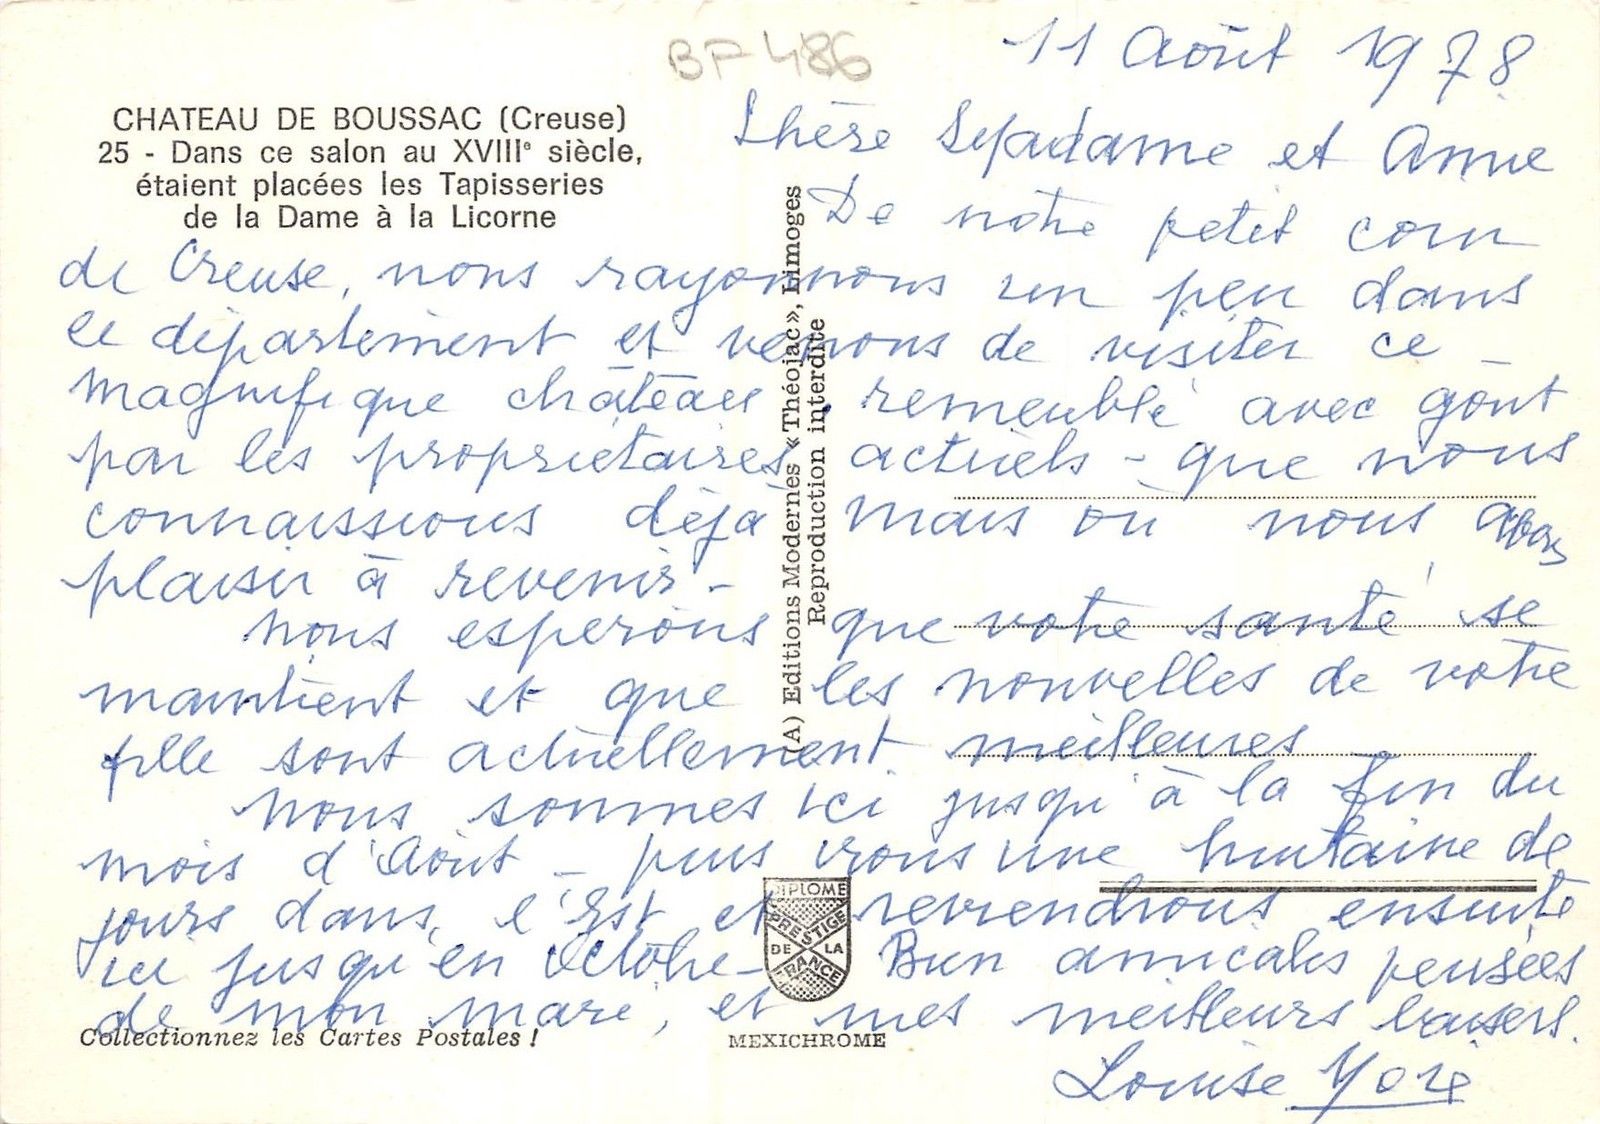 BF 486
11 Août 1978
CHATEAU DE BOUSSAC (Creuse)
25 - Dans ce salon au XVIIIe siècle,
étaient placées les Tapisseries
de la Dame à la Licorne
Chère Madame et Anne
De notre petit coin
de Creuse, nous rayonnons un peu dans
le département et venons de visiter ce
magnifique château, remeublé avec goût
par les propriétaires actuels - que nous
connaissions déjà mais où nous avons
plaisir à revenir -
Nous esperons que votre santé se
maintient et que les nouvelles de votre
fille sont actuellement meilleures
Nous sommes ici jusqu'à la fin du
mois d'Août - puis irons une huitaine de
jours dans l'Est et reviendrons ensuite
ici jusqu'en octobre - Bien amicales pensées
de mon mari, et mes meilleurs baisers.
Louise
(A) Editions Modernes «Théojac», Limoges
Reproduction interdite
DIPLOME
PRESTIGE
DE LA
FRANCE
Collectionnez les Cartes Postales !
MEXICHROME